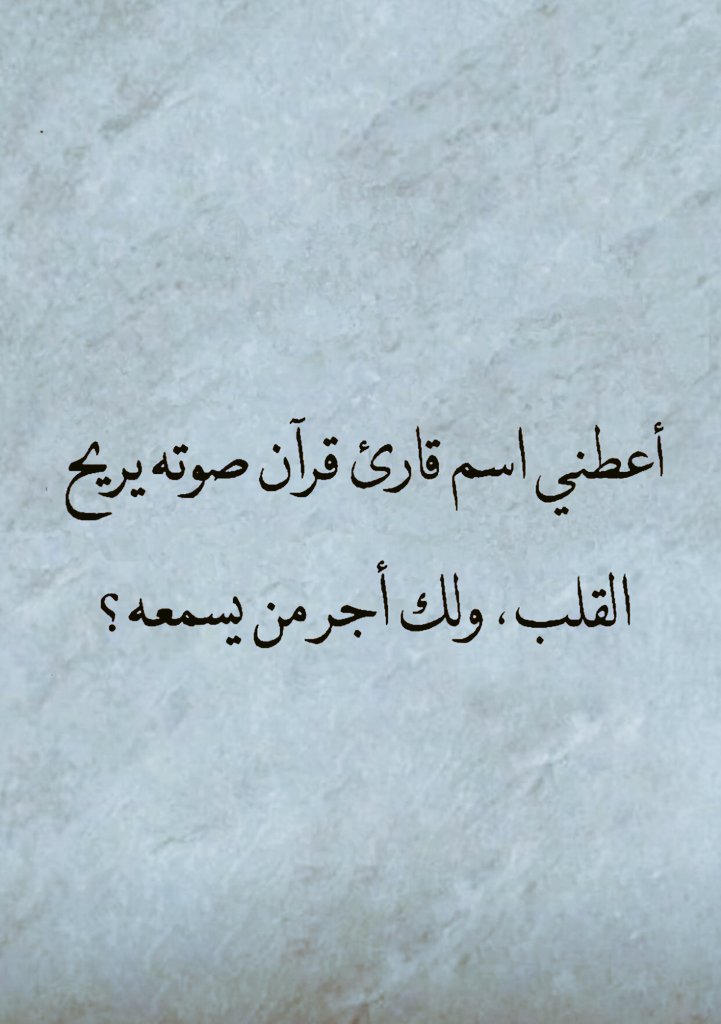 أعطني اسم قارئ قرآن صوته يريح
القلب، ولك أجر من يسمعه؟